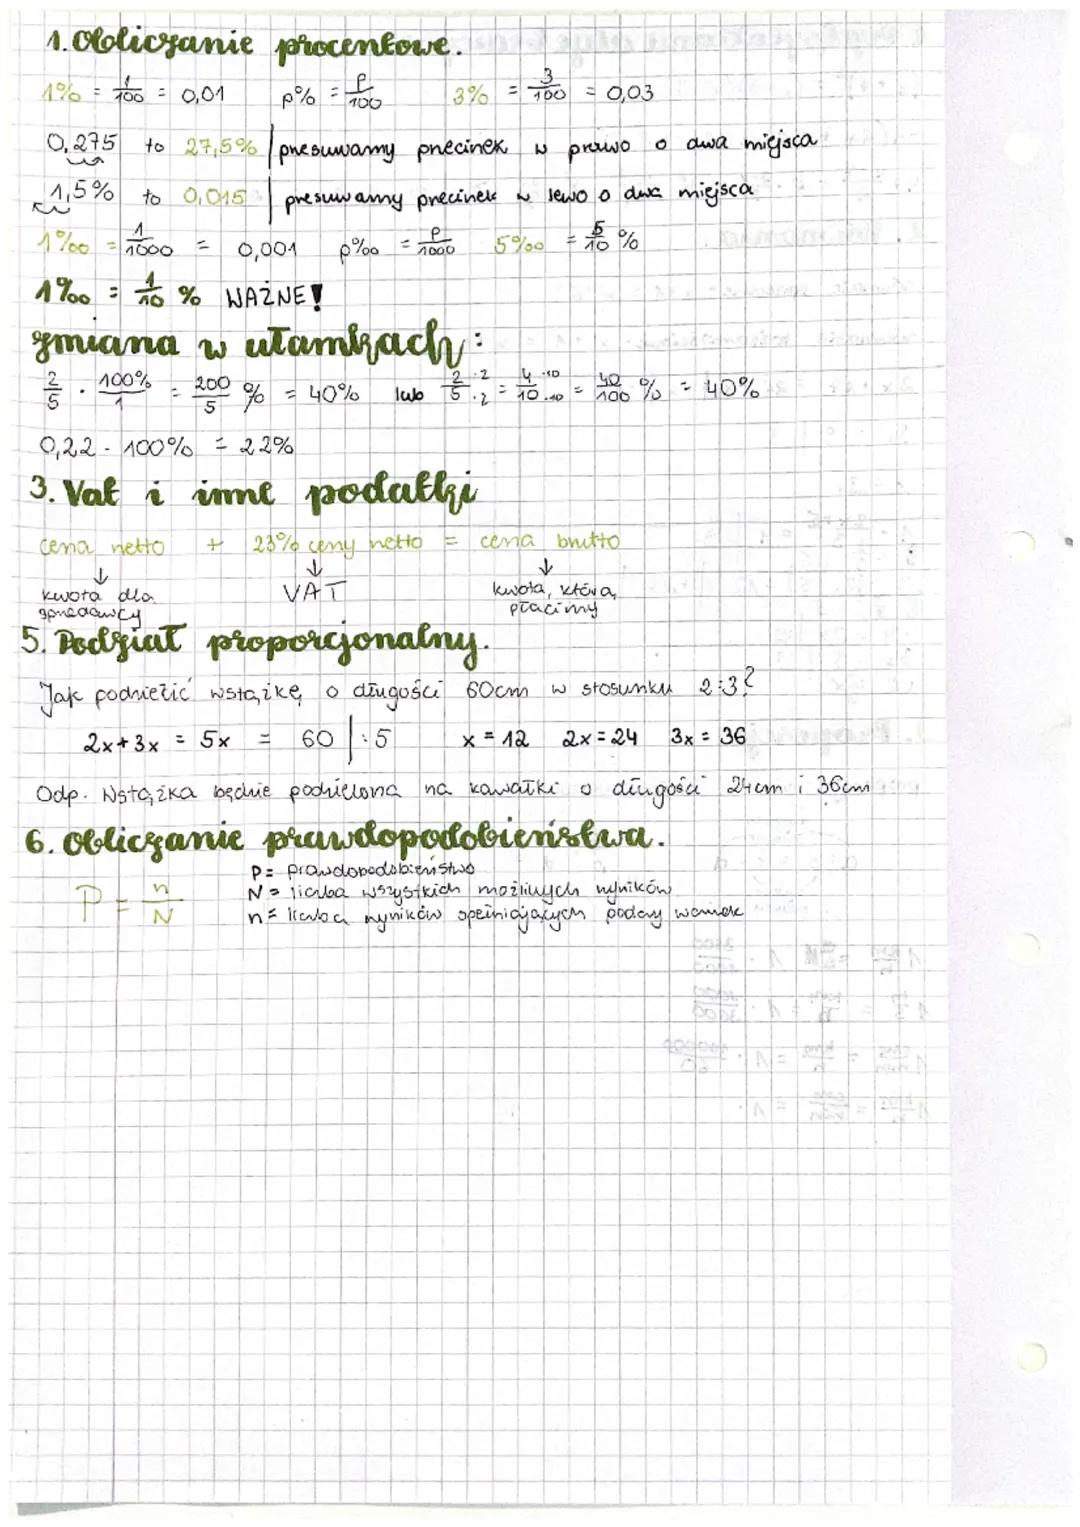 1. Obliczanie procentowe.
1% = 1/100 = 0,01 p% = p/100 3% = 3/100 = 0,03
0,275 to 27,5% | przesuwamy przecinek w prawo o dwa miejsca
1,5% to 0,015 | przesuwamy przecinek w lewo o dwa miejsca
1‰ = 1/1000 = 0,001 p‰ = p/1000 5‰ = 5/10 %
1‰ = 1/10 % WAŻNE!
zmiana w ułamkach:
2/5 · 100%/1 = 200/5 % = 40% lub 2·2/5·2 = 4·10/10·10 = 40/100 % = 40%
0,22 · 100% = 22%
3. Vat i inne podatki
cena netto + 23% ceny netto = cena brutto
↓ ↓ ↓
kwota dla VAT kwota, którą
sprzedawcy płacimy
5. Podział proporcjonalny.
Jak podzielić wstążkę o długości 60cm w stosunku 2:3?
2x+3x = 5x = 60 |:5 x = 12 2x = 24 3x = 36
Odp. Wstążka będzie podzielona na kawałki o długości 24cm i 36cm
6. Obliczanie prawdopodobieństwa.
P = n/N
P= prawdopodobieństwo
N= liczba wszystkich możliwych wyników
n= liczba wyników spełniających podany warunek